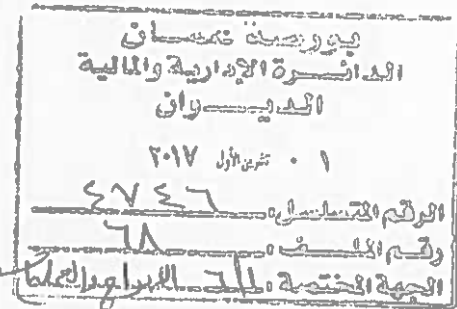 بورصة عمان
الدائرة الإدارية والمالية
الديوان
٠١ تشرين الأول ٢٠١٧
الرقم المتسلسل: ٤٧٤٦
رقم الملف: ٦٨
الجهة المختصة: